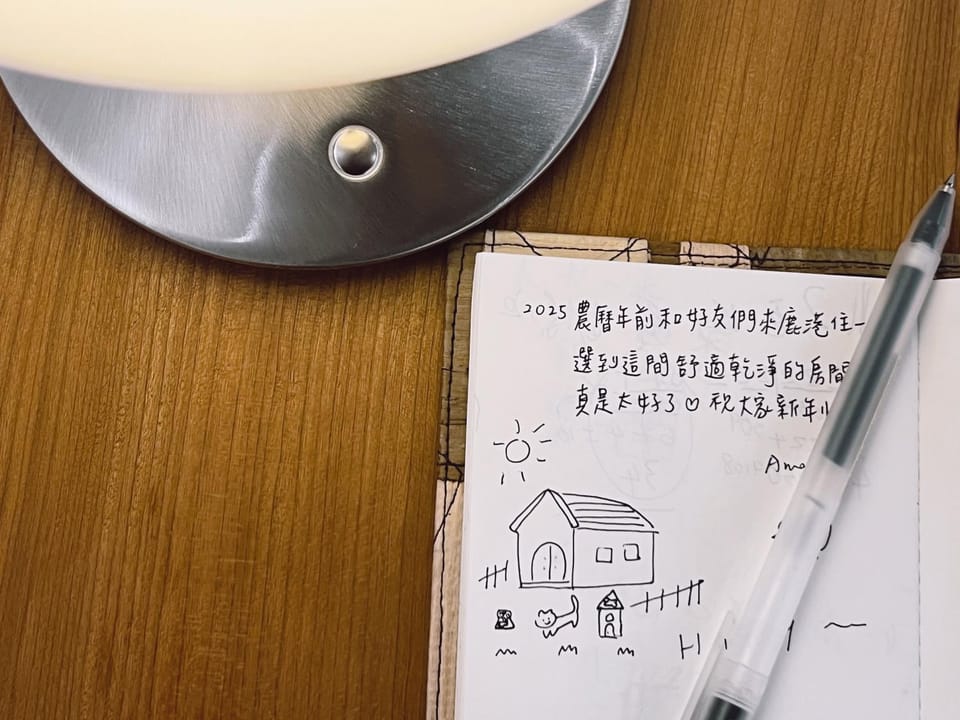 2025 農曆年前和好友們來鹿港住一
選到這間舒適乾淨的房間
真是太好了♡ 祝大家新年